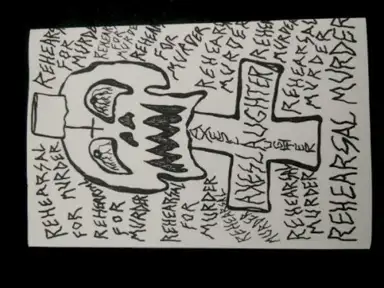 REHEARSAL
FOR
MURDER
REHEARSAL
FOR
MURDER
REHEARSAL
FOR
MURDER
REHEARSAL
MURDER
REHEARSAL
MURDER
AXESLAUGHTER
AXE
SLAUGHTER
REHEARSAL
FOR
MURDER
REHEARSAL
FOR
MURDER
REHEARSAL
FOR
MURDER
REHEARSAL
MURDER
REHEARSAL
MURDER
REHEARSAL MURDER